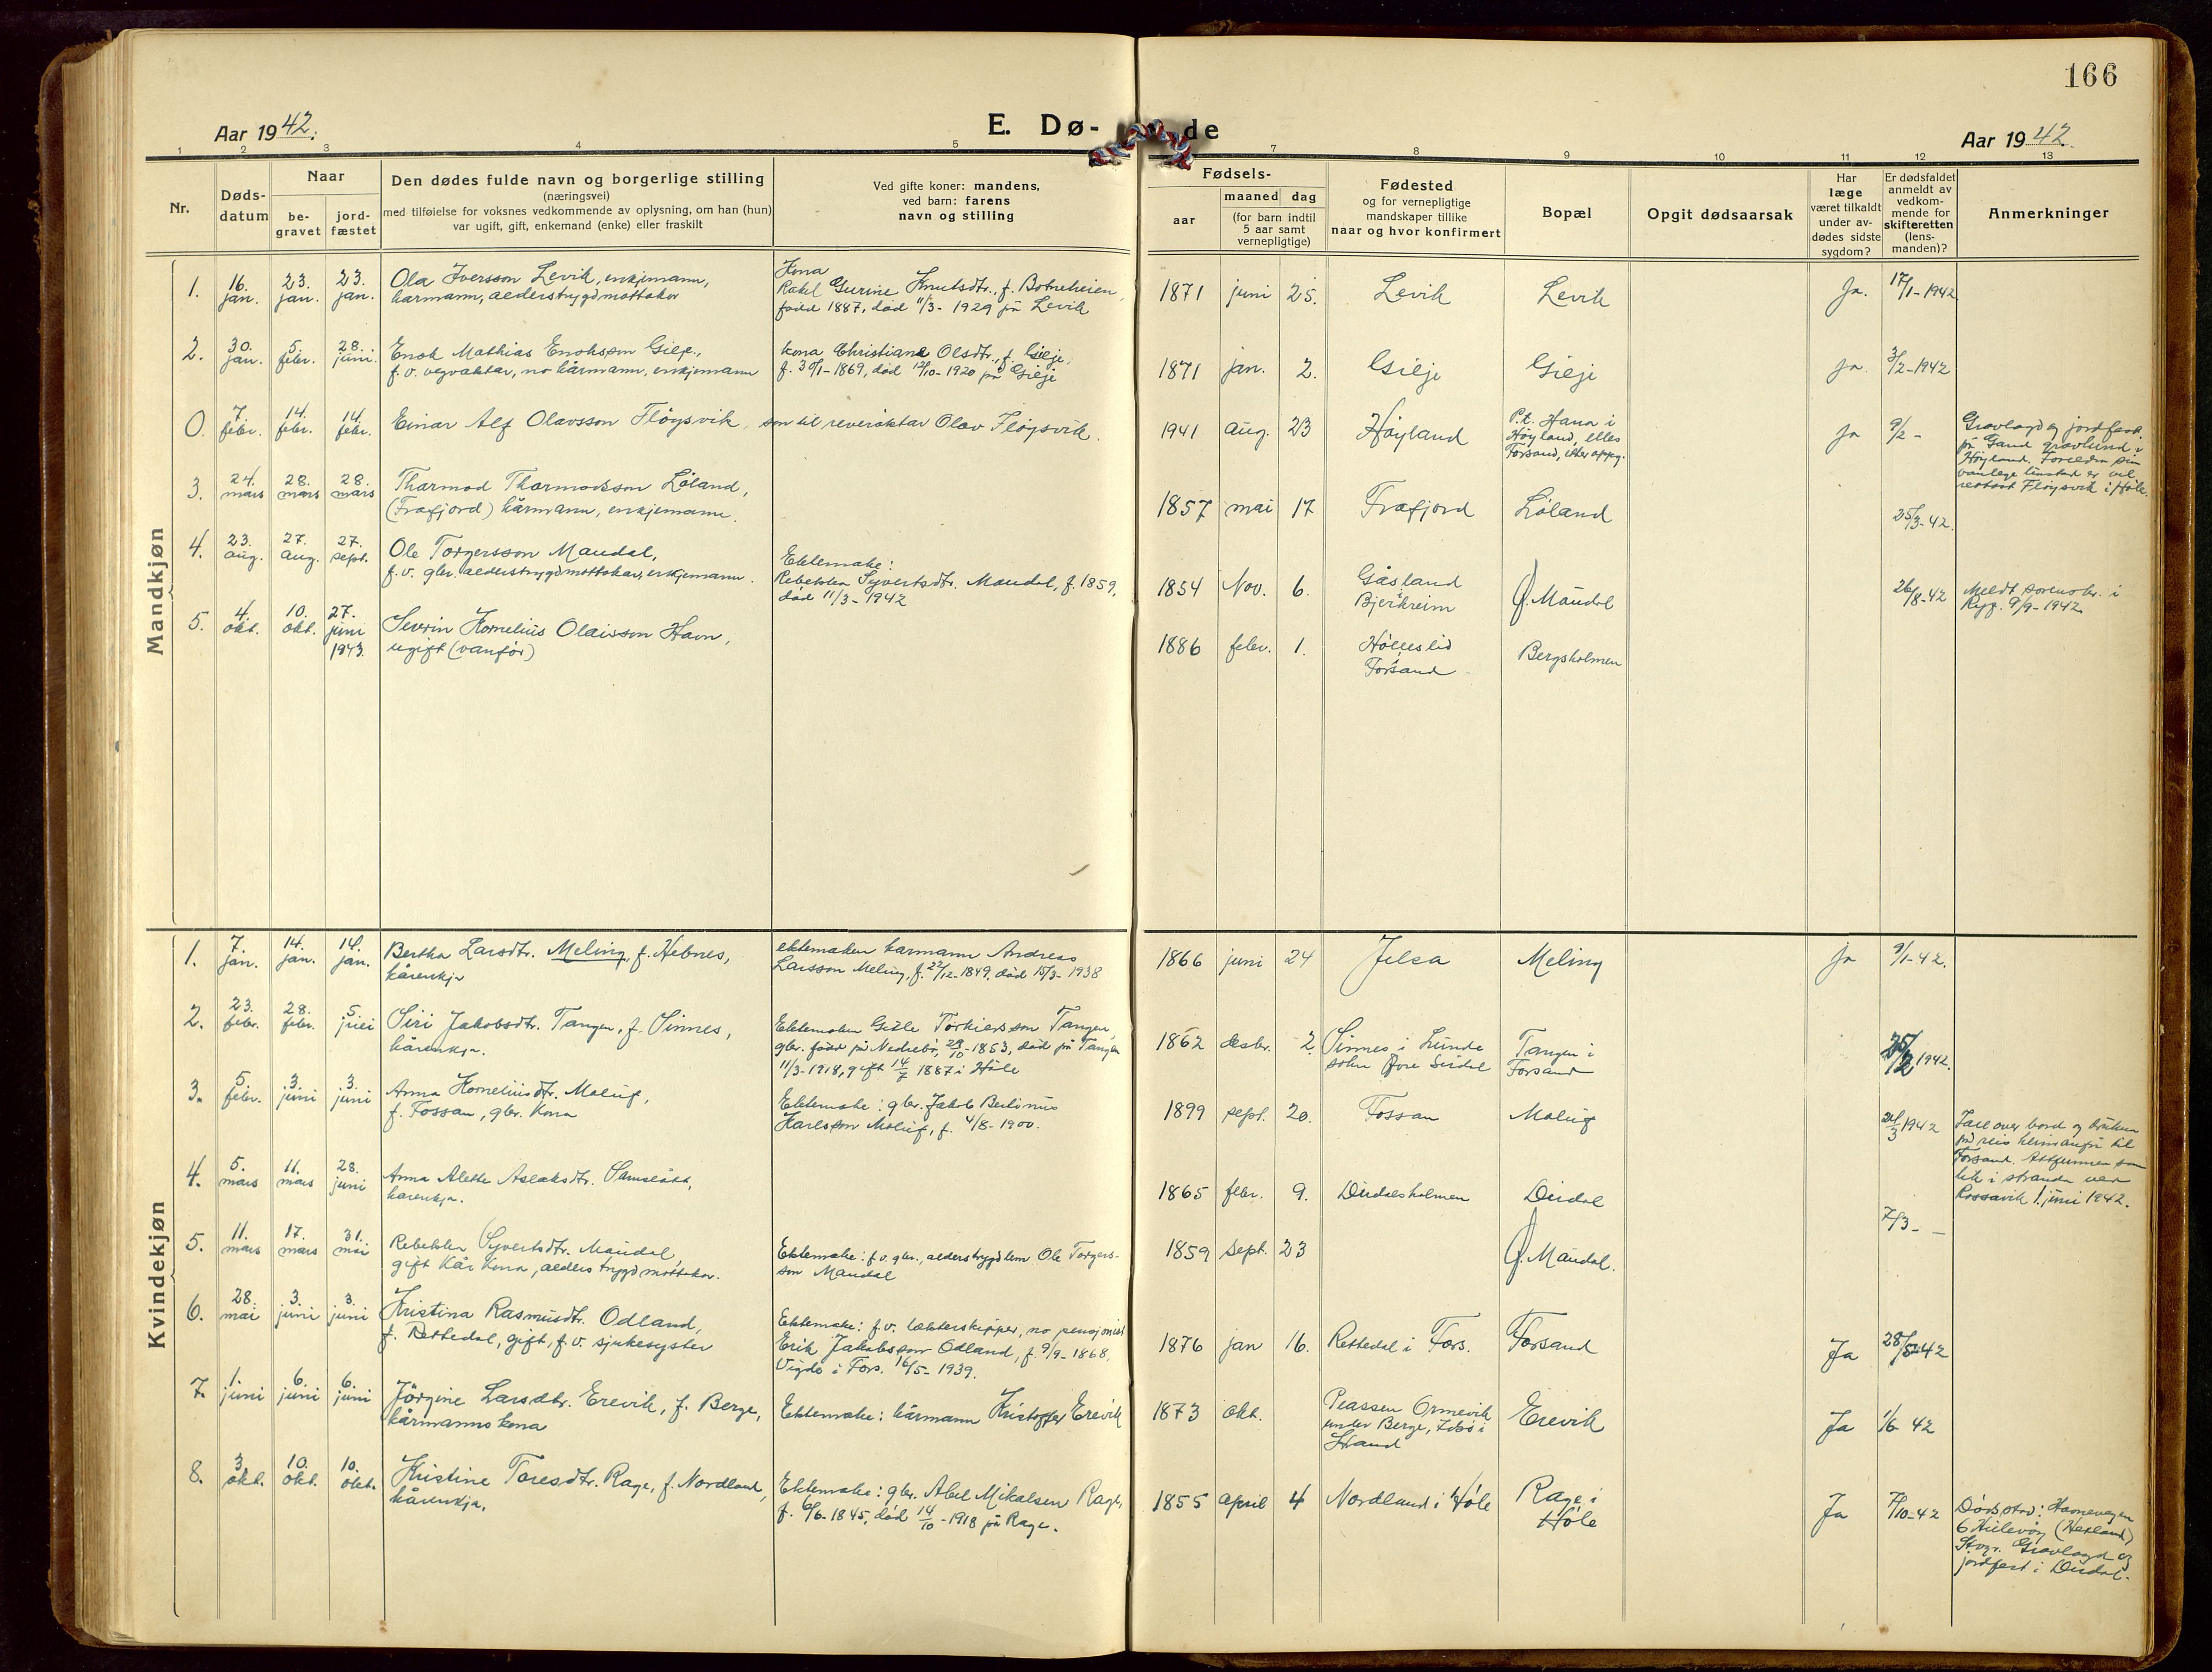 166
Aar 1942.
E. Dø-
de
Aar 1942.
1 2 3 4 5 7 8 9 10 11 12 13
Nr.
Døds-
datum
Naar
be-
gravet
jord-
fæstet
Den dødes fulde navn og borgerlige stilling
(næringsvei)
med tilføielse for voksnes vedkommende av oplysning, om han (hun)
var ugift, gift, enkemand (enke) eller fraskilt
Ved gifte koner: mandens,
ved barn: farens
navn og stilling
Fødsels-
aar
maaned dag
(for barn indtil
5 aar samt
vernepligtige)
Fødested
og for vernepligtige
mandskaper tillike
naar og hvor konfirmert
Bopæl
Opgit dødsaarsak
Har
læge
været tilkaldt
under av-
dødes sidste
sygdom?
Er dødsfaldet
anmeldt av
vedkom-
mende for
skifteretten
(lens-
manden)?
Anmerkninger
Mandkjøn
1. 16. jan. 23. jan. 23. jan.
Ola Iversson Levik, enkjemann,
kårmann, alderstrygdmottakar
Kona
Rakel Gurine Knutsdtr., f. Botneheien,
fødd 1887, død 11/3 - 1929 på Levik
1871 juni 25. Levik Levik Ja. 17/1 - 1942
2. 30. jan. 5. febr. 28. juni.
Enok Mathias Enokson Gilje,
f.v. vegvaktar, no kårmann, enkjemann
kona Christiane Olsdtr., f. Gilje,
f. 30/1 - 1869, død 12/10 - 1920 på Gilje
1871 jan. 2. Gilje Gilje ja 3/2 - 1942
0. 7. febr. 14. febr. 14. febr.
Einar Alf Olavsson Fløysvik, son til revevaktar Olav Fløysvik.
1941 aug. 23 Høyland
P.t. Hana i
Høyland, elles
Forsand, etter oppg.
ja 9/2 -
Gravlagd og jordfest
på Gand gravlund i
Høyland. Foreldra sin
vanlege
Fløysvik i Høle.
3. 24. mars 28. mars 28. mars
Thormod Thormodsson Løland,
(Frafjord) kårmann, enkjemann.
1857 mai 17 Frafjord Løland 25/3 - 42.
4. 23. aug. 27. aug. 27. sept.
Ole Torgersson Maudal,
f.v. gbr. alderstrygdmottakar, enkjemann.
Ektemake:
Rebekka Syvertsdtr. Maudal, f. 1859,
død 11/3 - 1942
1854 Nov. 6.
Gåsland
Bjerkreim
Ø. Maudal
26/8 - 42
Meldt sorenskr. i
Ryf. 9/9 - 1942
5. 4. okt. 10. okt. 27. juni 1943.
Severin Kornelius Olaisson Havn,
ugift (vanfør)
1886 febr. 1.
Høllesli
Forsand
Bergsholmen
Kvindekjøn
1. 7. jan. 14. jan. 14. jan.
Bertha Larsdtr. Meling, f. Hebnes,
kårenkja
ektemaken kårmann Andreas
Larsson Meling, f. 22/12 - 1849, død 15/3 - 1938
1866 juni 24 Jelsa Meling Ja 9/1 - 42.
2. 23. febr. 28. febr. 5. juli
Siri Jakobsdtr. Tangen, f. Sinnes,
kårenkja.
Ektemaken Gitle Torkjersson Tangen,
gbr. fødd på Nedrebø, 29/10 - 1853, død på Tangen
11/3 - 1918, gift 14/7 1887 i Høle
1862 desbr. 2.
Sinnes i Lunde
sokn Øvre Sirdal
Tangen i
Forsand
25/2 1942.
3. 5. febr. 3. juni 3. juni
Anna Korneliusdtr. Moluf,
f. Fossan, gbr. kona
Ektemake: gbr. Jakob Bertinus
Karlsson Moluf, f. 4/8 - 1900.
1899 sept. 20. Fossan Moluf 1942
Fall over bord og drukna
på reis heimanfrå til
Forsand. Attfunnen som
lik i stranda ved
Rossavik 1. juni 1942.
4. 5. mars 11. mars 28. juni
Anna Alette Aslaksdtr.
kårenkja.
1865 febr. 9. Dirdalsholmen Dirdal 7/3 -
5. 11. mars 17. mars 31. mai
Rebekka Syvertsdtr. Maudal,
gift kårkona, alderstrygdmottakar.
Ektemake: f.v. gbr., alderstrygdlem Ole Torgers-
son Maudal
1859 sept. 23 Ø. Maudal.
6. 28. mai 3. juni 3. juni
Kristina Rasmusdtr. Odland,
f. Rettedal, gift, f.v. sjukesyster
Ektemake: f.v. lekterskipper, no pensjonist
Erik Jakobsson Odland, f. 9/9 - 1868,
Vigde i Fors. 16/5 - 1939.
1876 jan 16. Rettedal i Fors. Forsand Ja 28/5 - 42
7. 1. juni 6. juni 6. juni
Jørgine Larsdtr. Erevik, f. Berge,
kårmannskona
Ektemake: kårmann Kristoffer Erevik
1873 okt.
Plassen Ormevik
under Berge, i
Strand
Erevik Ja 1/6 42
8. 3. okt. 10. okt. 10. okt.
Kristine Toresdtr. Rage, f. Nordland,
kårenkja.
Ektemake: gbr. Abel Mikalsen Rage,
f. 6/6 - 1845, død 14/10 - 1918 på Rage.
1855 april 4 Nordland i Høle
Rage i
Høle
Ja 7/10 - 42
Dødsstad: Hamnevegen
6 Hillevåg (Hetland)
Stvgr. Gravlagd og
jordfest i Dirdal.